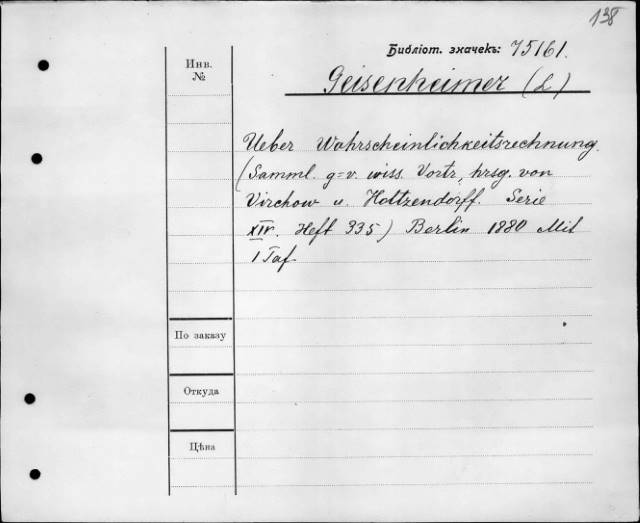 138
Библіот. значекъ: 75161.
Инв.
№
Geisenheimer (L)
Ueber Wahrscheinlichkeitsrechnung.
(Samml. g=v. wiss. Vortr, hrsg. von
Virchow u. Holtzendorff. Serie
XIV. Heft 335) Berlin 1880 Mit
1 Taf.
По заказу
Откуда
Цѣна